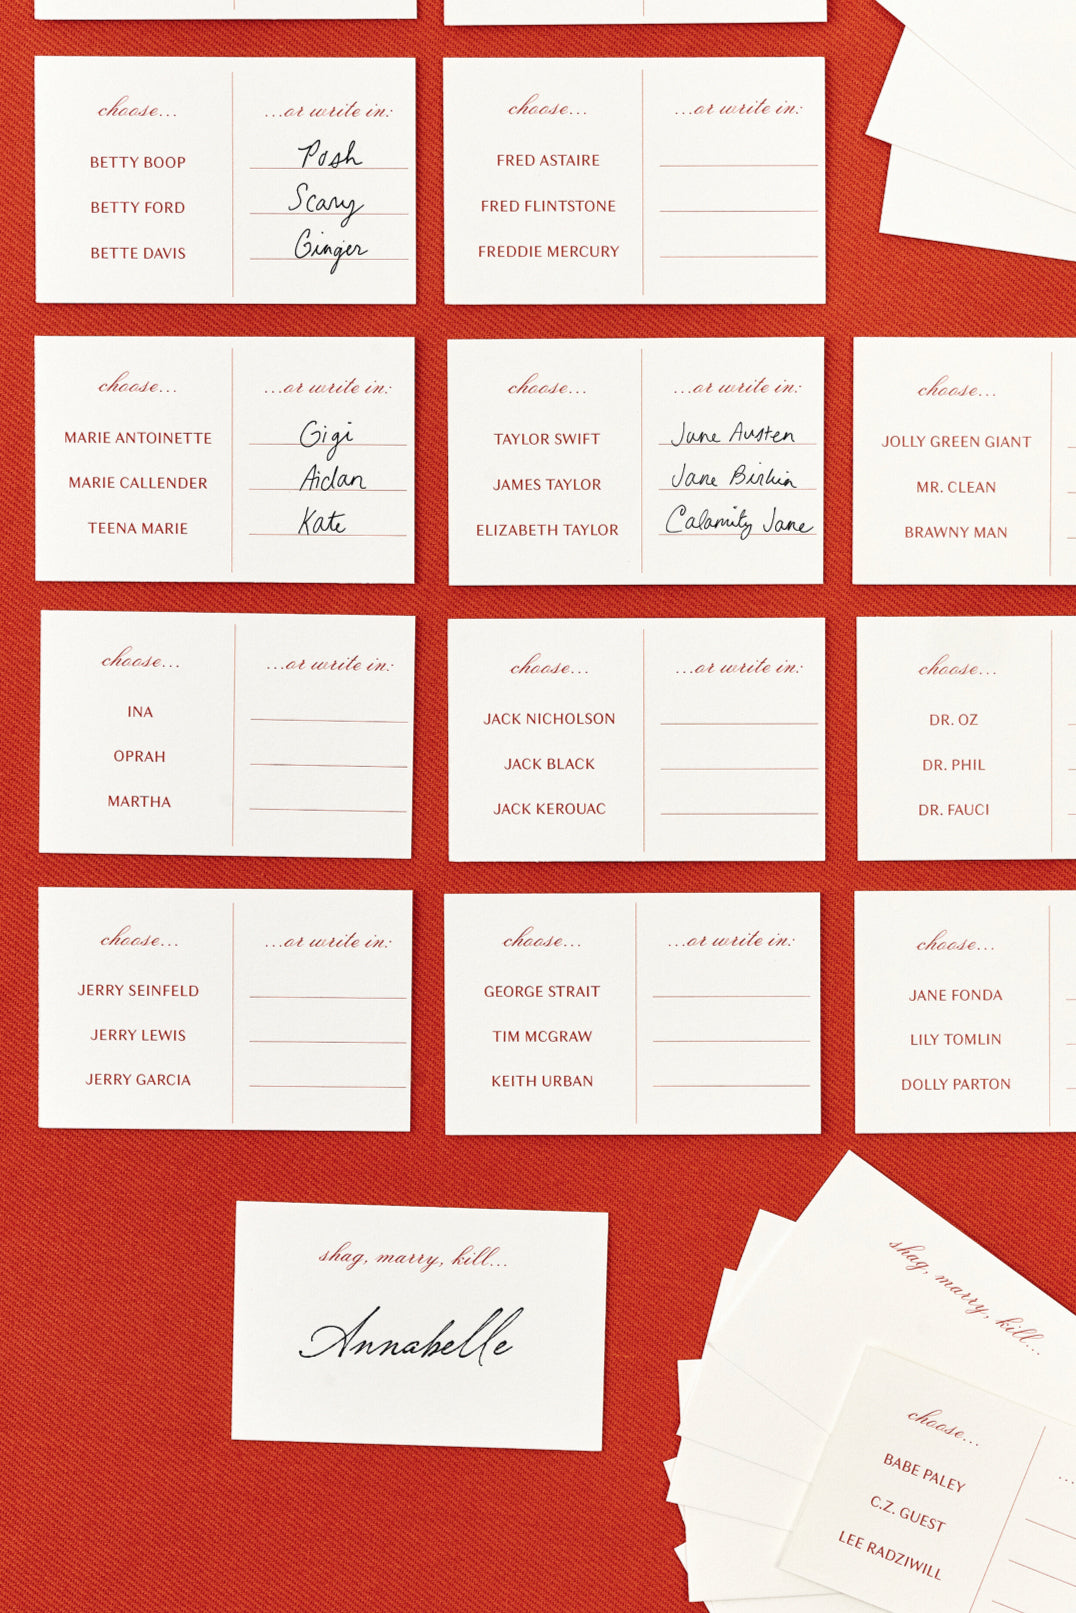 choose...
BETTY BOOP
BETTY FORD
BETTE DAVIS
...or write in:
Posh
Scary
Ginger
choose...
FRED ASTAIRE
FRED FLINTSTONE
FREDDIE MERCURY
...or write in:
choose...
MARIE ANTOINETTE
MARIE CALLENDER
TEENA MARIE
...or write in:
Gigi
Aidan
Kate
choose...
TAYLOR SWIFT
JAMES TAYLOR
ELIZABETH TAYLOR
...or write in:
Jane Austen
Jane Birkin
Calamity Jane
choose...
JOLLY GREEN GIANT
MR. CLEAN
BRAWNY MAN
choose...
INA
OPRAH
MARTHA
...or write in:
choose...
JACK NICHOLSON
JACK BLACK
JACK KEROUAC
...or write in:
choose...
DR. OZ
DR. PHIL
DR. FAUCI
choose...
JERRY SEINFELD
JERRY LEWIS
JERRY GARCIA
...or write in:
choose...
GEORGE STRAIT
TIM MCGRAW
KEITH URBAN
...or write in:
choose...
JANE FONDA
LILY TOMLIN
DOLLY PARTON
shag, marry, kill...
Annabelle
shag, marry, kill...
choose...
BABE PALEY
C.Z. GUEST
LEE RADZIWILL
...